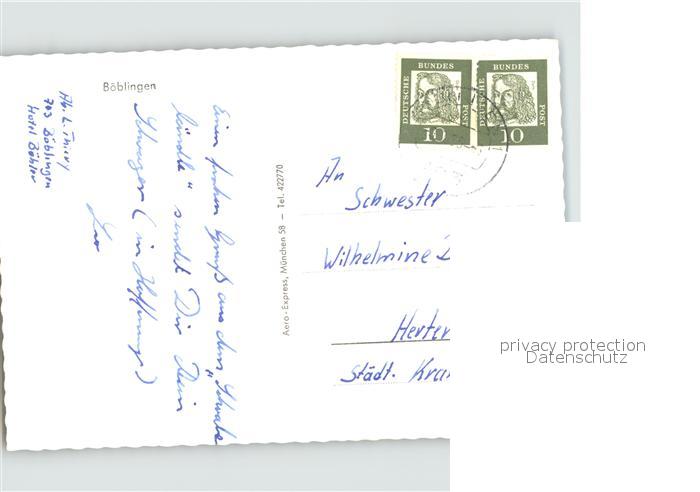 Böblingen
Abs. L. Thiery
703 Böblingen
Hotel Böhler
Einen frohen Gruß aus dem "Schwabe
ländle" sendet Dir Dein
Schwager (in Hoffnung)
Leo
Aero-Express, München 58 — Tel. 422770
DEUTSCHE BUNDES POST
10
DEUTSCHE BUNDES POST
10
An
Schwester
Wilhelmine
Herten
Städt. Kra
privacy protection
Datenschutz